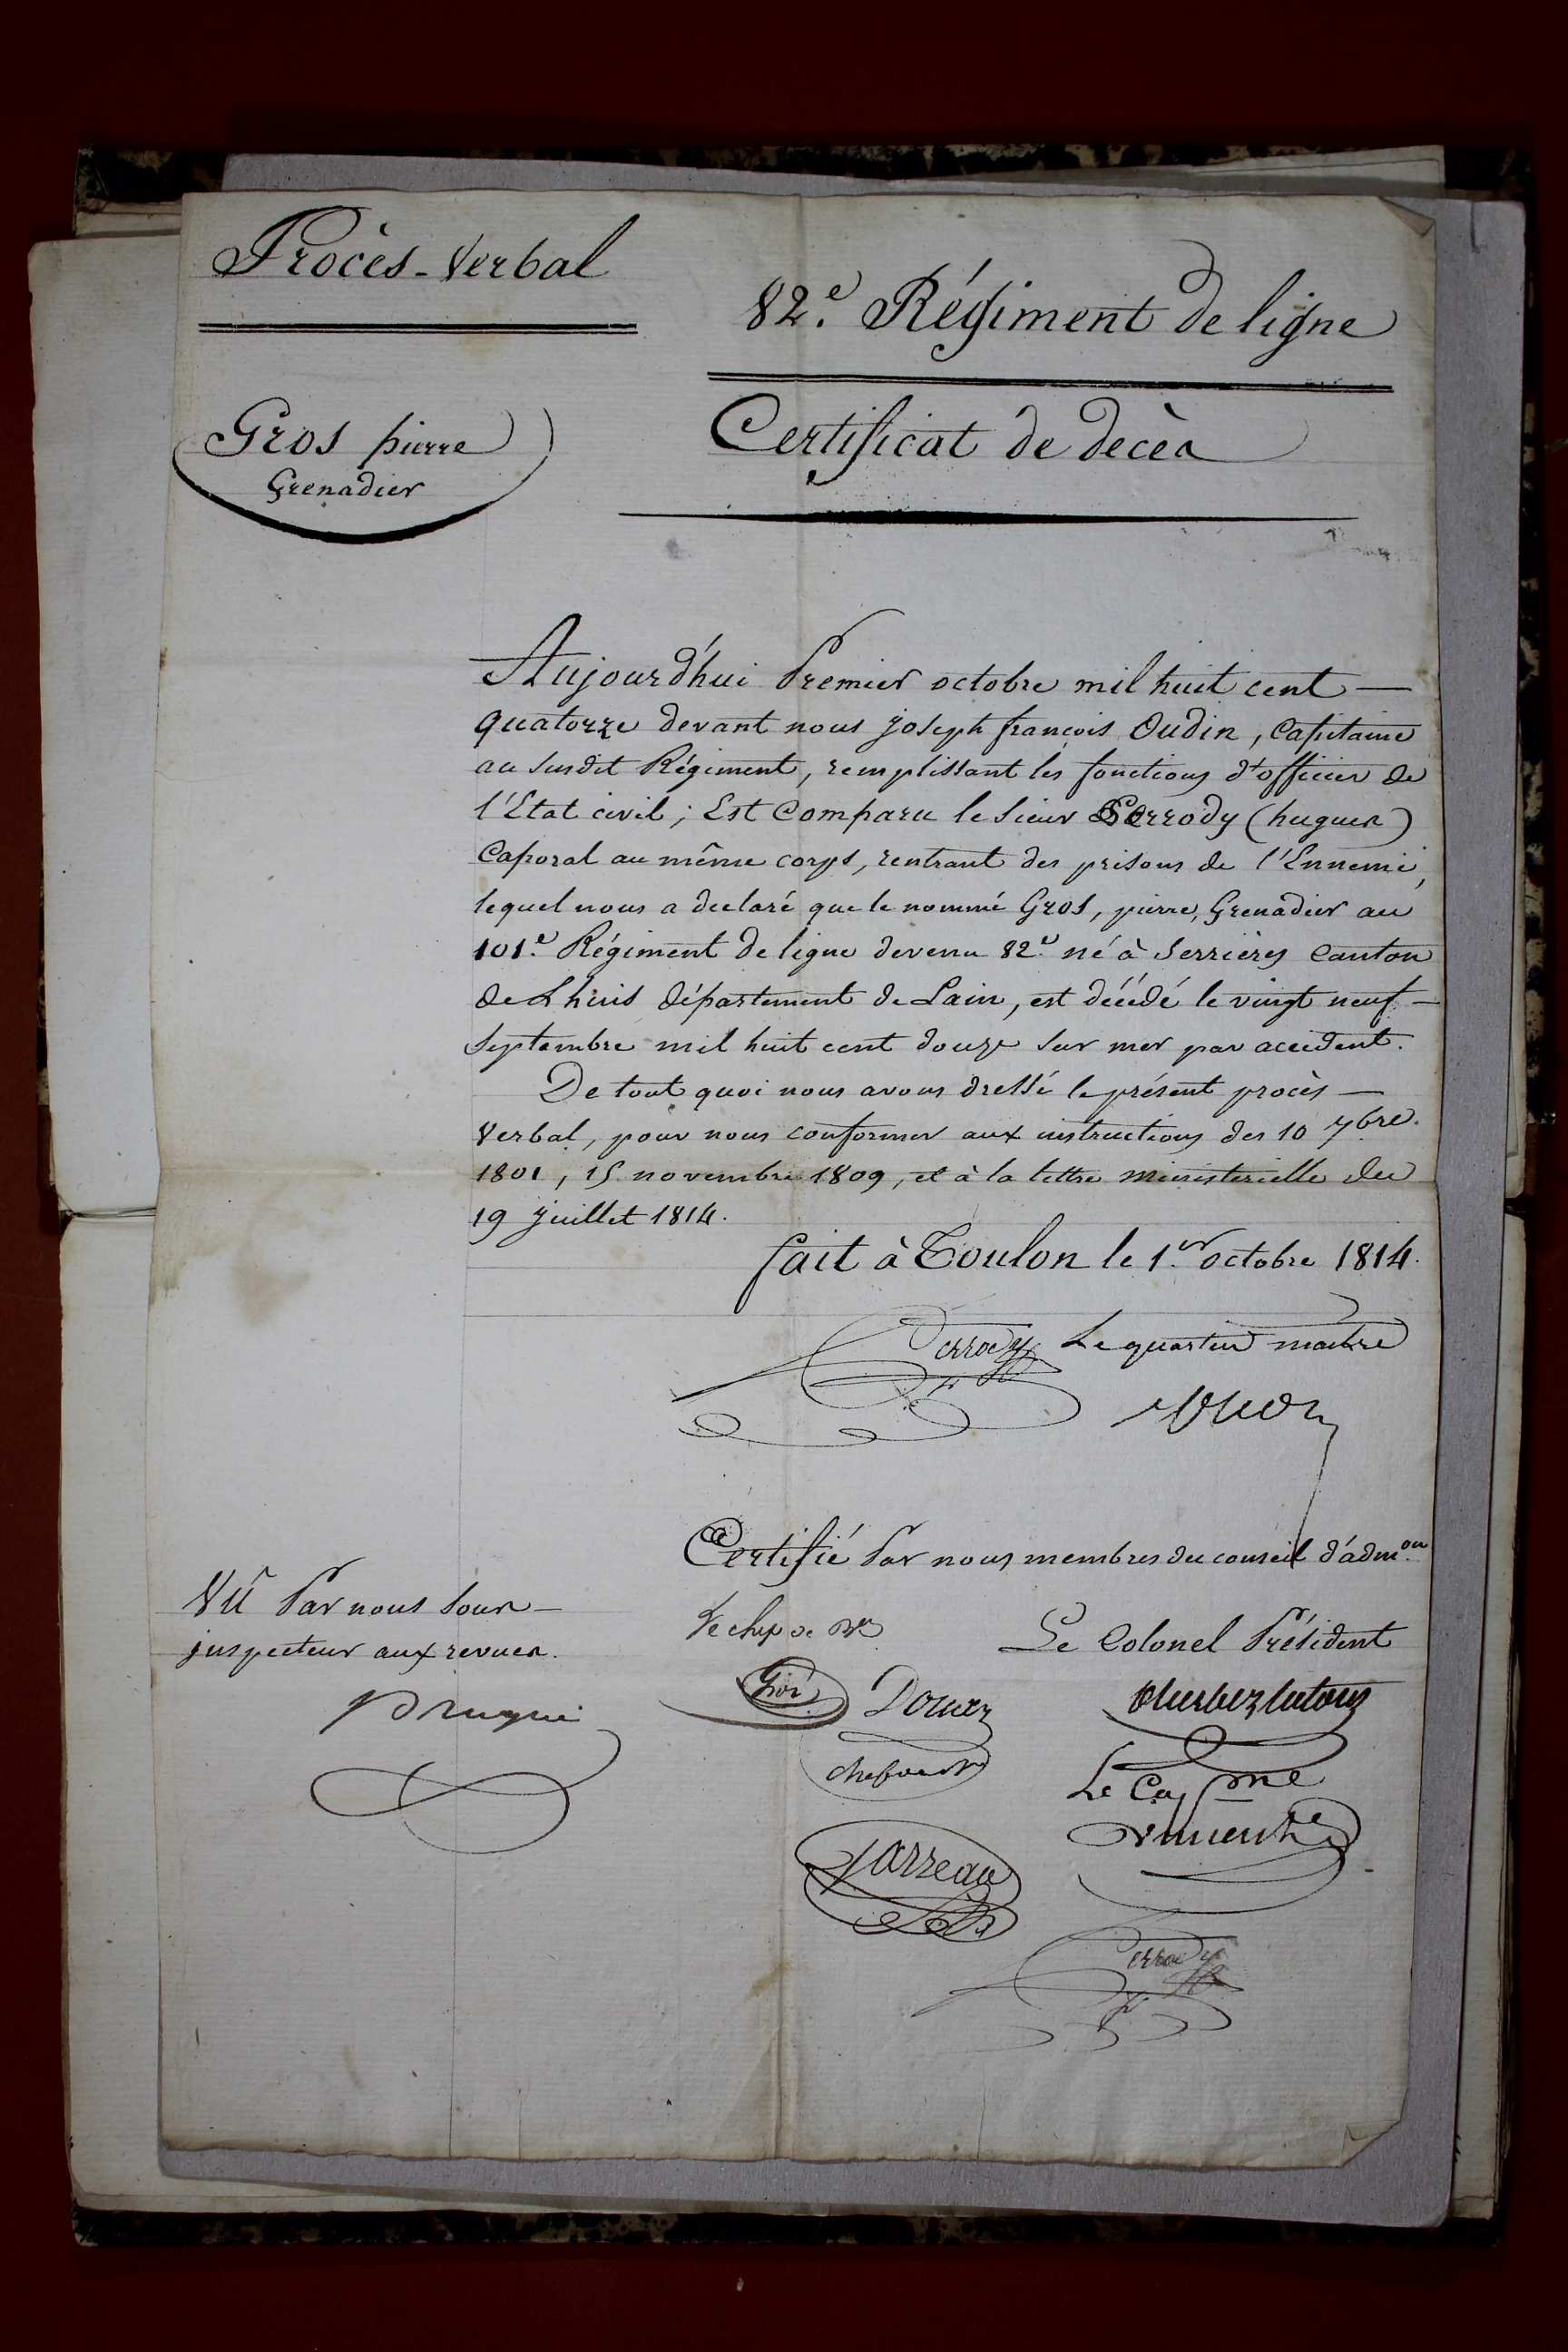 Procès-Verbal
82.e Régiment de ligne
Gros pierre
Grenadier
Certificat de decès
Aujourd'hui Premier octobre mil huit cent —
quatorze devant nous joseph françois Oudin, Capitaine
au susdit Régiment, remplissant les fonctions d'officier de
l'Etat civil; Est Comparu le Sieur Perrody (hugues)
Caporal au même corps, rentrant des prisons de l'Ennemi,
lequel nous a declaré que le nommé Gros, pierre, Grenadier au
101.e Régiment de ligne devenu 82.e né à Serrières Canton
de Lhuis département de Lain, est décédé le vingt neuf —
Septembre mil huit cent douze sur mer par accident.
De tout quoi nous avons dressé le présent procès —
Verbal, pour nous conformer aux instructions des 10 7bre.
1801, 15 novembre 1809, et à la lettre ministerielle du
19 juillet 1814.
fait à Toulon le 1.er octobre 1814.
Perrody Le quartier maitre
Certifié Par nous membres du conseil d'adm.on
Vû Par nous Sous —
inspecteur aux revues.
Le chef de B.on
Le Colonel Président
Douez
Le Cap.ne
Jarreau
Perrody